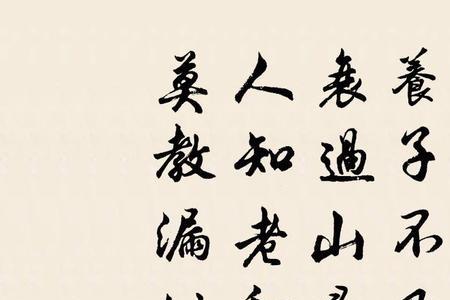 養子不
衰過山
人知老
莫教漏